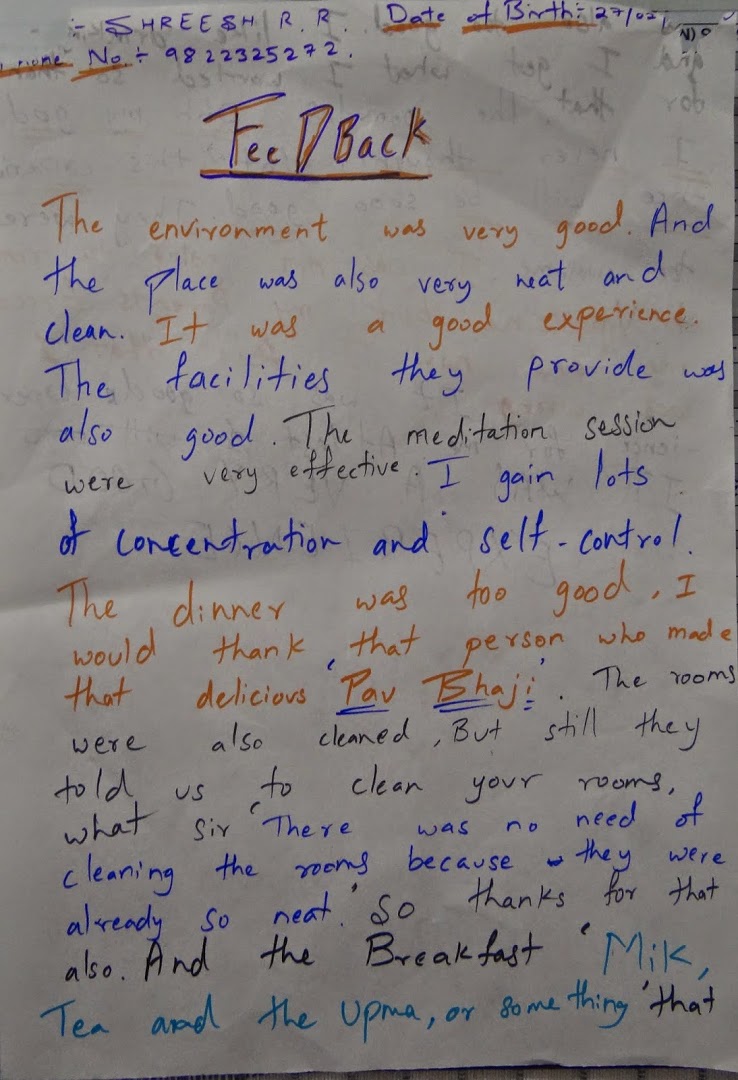 :- SHREESH R. R. Date of Birth:- 27/02/
No ÷ 9822325272.
FeeDBack
The environment was very good. And
the place was also very neat and
clean. It was a good experience.
The facilities they provide was
also good. The meditation session
were very effective. I gain lots
of concentration and self-control.
The dinner was too good, I
would thank, that person who made
that delicious 'Pav Bhaji'. The rooms
were also cleaned, But still they
told us to clean your rooms,
what sir 'There was no need of
cleaning the rooms because they were
already so neat.' So thanks for that
also. And the Breakfast 'Mik,
Tea and the Upma, or something 'that